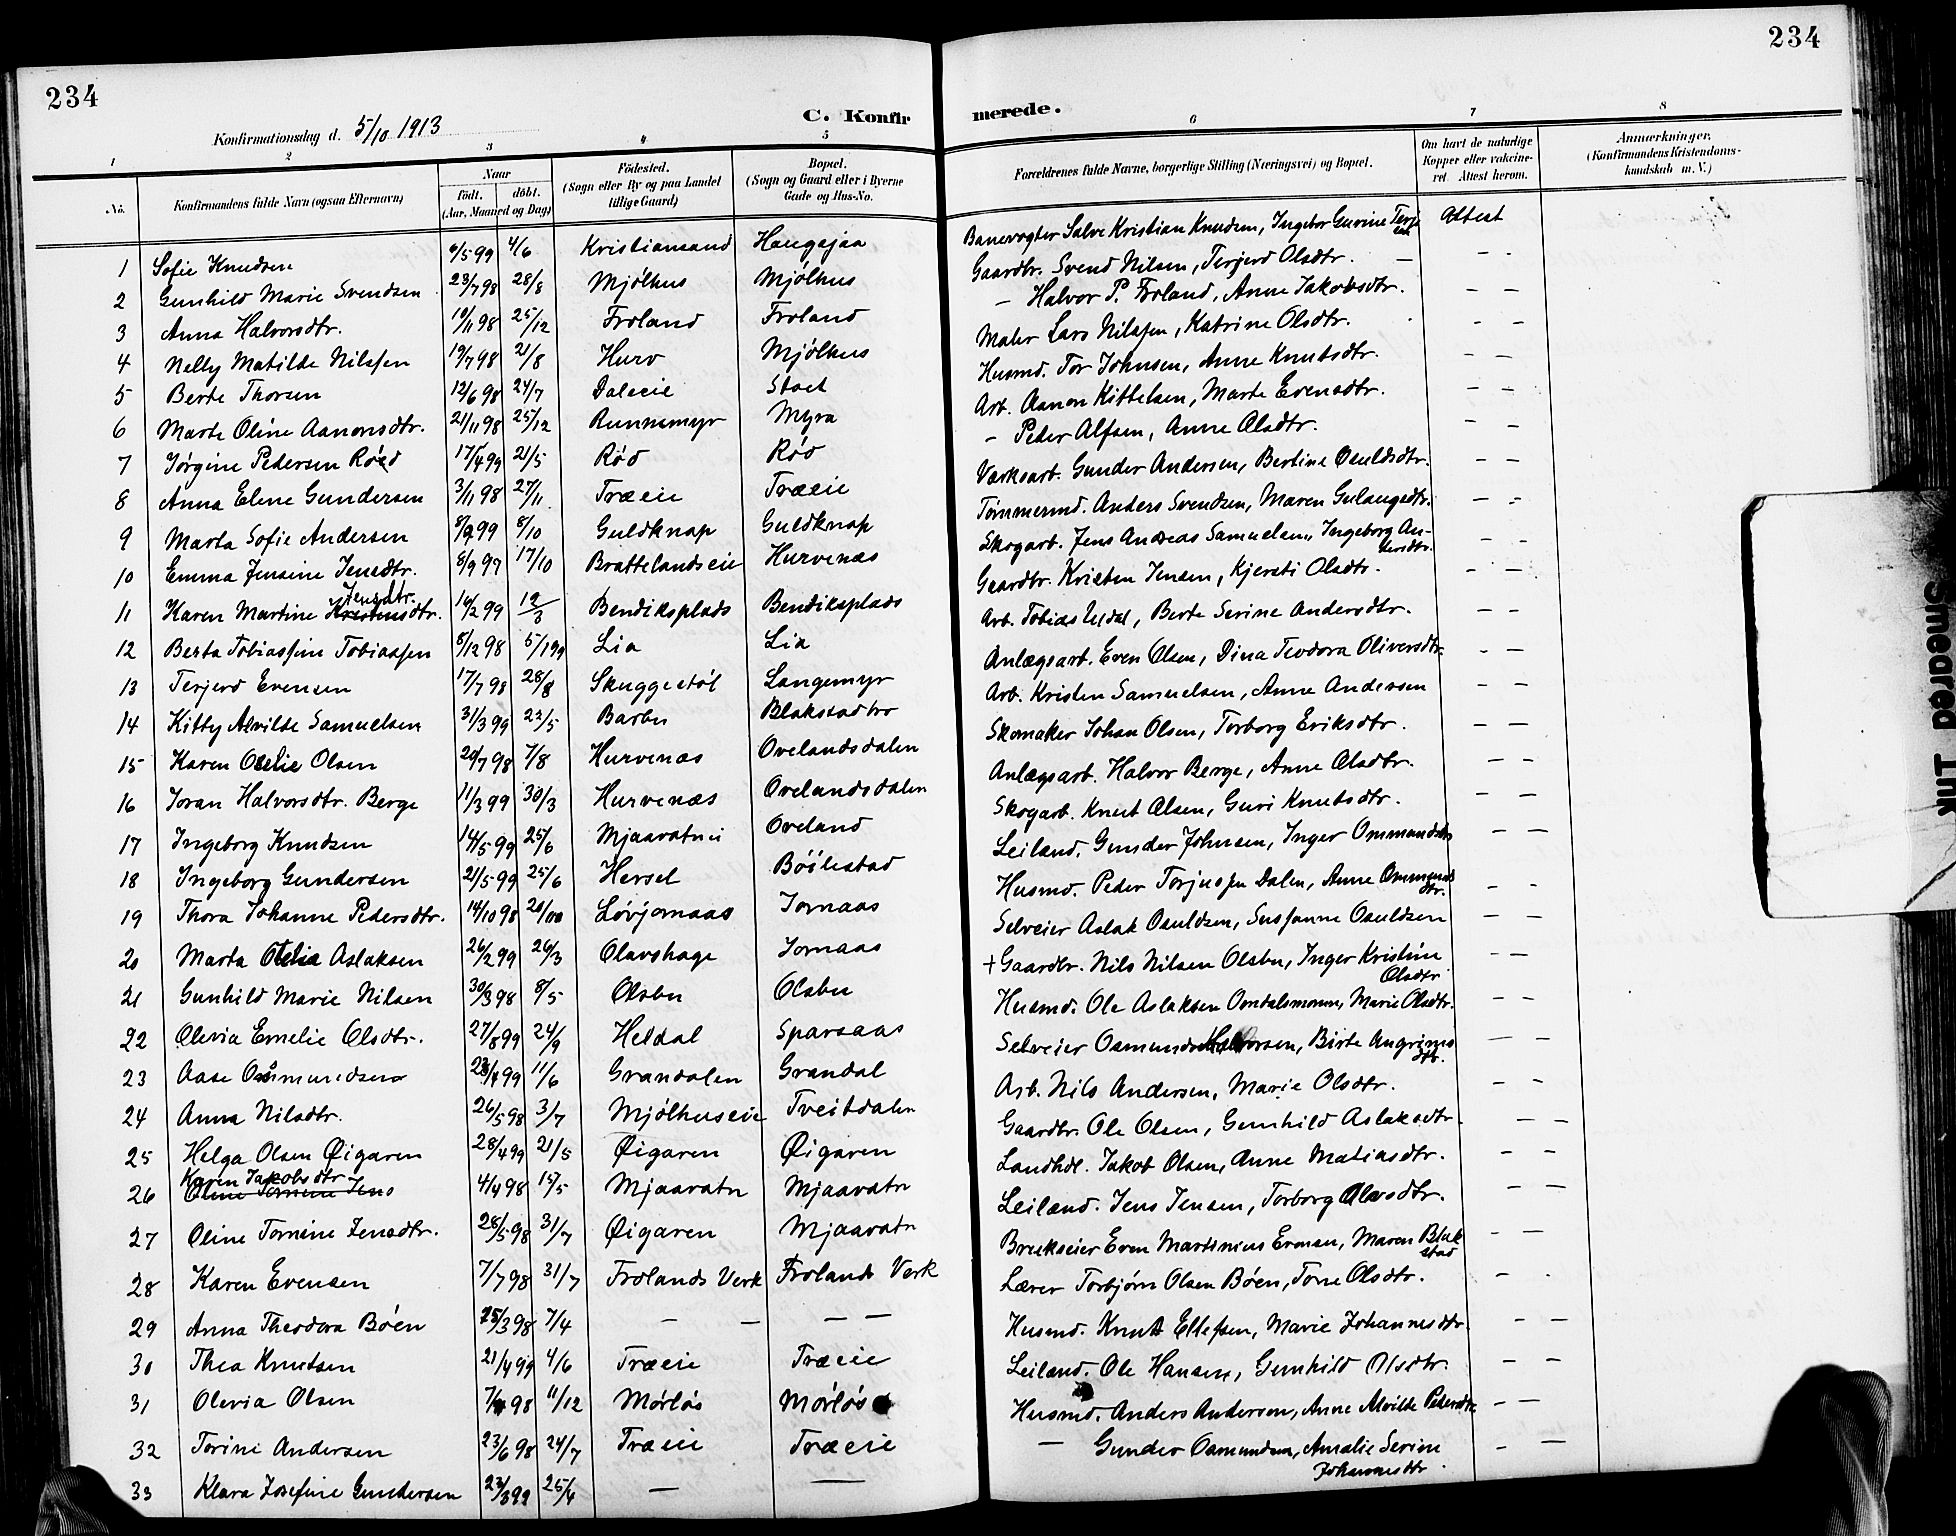 234
234
C. Konfir merede.
Konfirmationsdag d. 5/10 1913
1 2 3 4 5 6 7 8
No.
Konfirmandens fulde Navn (ogsaa Efternavn)
Naar født. døbt. (Aar, Maaned og Dag)
Fødested. (Sogn eller By og paa Landet tillige Gaard)
Bopæl. (Sogn og Gaard eller i Byerne Gade og Hus-No.
Forældrenes fulde Navne, borgerlige Stilling (Næringsvei) og Bopæl.
Om havt de naturlige Kopper eller vakcineret. Attest herom.
Anmærkninger. (Konfirmandens Kristendomskundskab m. V.)
1 Sofie Knudsen 6/5 99 4/6 Kristiansand Haugsjaa Banevogter Salve Kristian Knudsen, Ingebor Gurine Terjesen Attest
2 Gunhild Marie Svendsen 23/7 98 28/8 Mjølhus Mjølhus Gaardbr. Svend Nilsen, Terjerd Olsdtr. — - -
3 Anna Halvorsdtr. 19/11 98 25/12 Froland Froland — Halvor P. Froland, Anne Jakobsdtr. - -
4 Nelly Matilde Nilssen 19/7 98 21/8 Hurv Mjølhus Maler Lars Nilssen, Katrine Olsdtr. - -
5 Berte Thorsen 12/6 98 24/7 Daleeie Stoet Husmd. Tor Johnsen, Anne Knutsdtr. - -
6 Marte Oline Aanonsdtr. 21/11 98 25/12 Runnemyr Myra Arb. Aanon Kittelsen, Marte Evensdtr. - -
7 Jørgine Pedersen Røed 17/4 99 21/5 Rød Rød — Peder Alfsen, Anne Olsdtr. - -
8 Anna Elene Gundersen 3/11 98 27/11 Træeie Træeie Værksarb. Gunder Andersen, Bertine Osuldsdtr. - -
9 Marta Sofie Andersen 8/9 99 8/10 Guldknap Guldknap Tømmermd. Anders Svendsen, Maren Gulaugsdtr. - -
10 Emma Jensine Jensdtr. 8/9 99 17/10 Brattelandseie Hurvenæs Skogarb. Jens Andreas Samuelsen, Ingeborg Andersdtr. - -
11 Karen Martine Kristensdtr. Jensdtr. 16/2 99 19/3 Bendiksplads Bendiksplads Gaardbr. Kristen Jensen, Kjersti Olsdtr. - -
12 Berta Tobiassine Tobiassen 8/12 98 5/1 99 Lia Lia Arb. Tobias Uldal, Berte Serine Andersdtr. - -
13 Terjerd Evensen 17/7 98 28/8 Skuggestøl Langemyr Anlægsarb. Even Olsen, Dina Teodora Oliversdtr. - -
14 Kitty Alvilde Samuelsen 31/3 99 22/5 Barbu Blakstadbro Arb. Kristen Samuelsen, Anne Andersen - -
15 Karen Otelie Olsen 20/7 98 7/8 Hurvenæs Ovelandsdalen Skomaker Johan Olsen, Torborg Eriksdtr. - -
16 Joran Halvorsdtr. Berge 11/3 99 30/3 Hurvenæs Ovelandsdalen Anlægsarb. Halvor Berge, Anne Olsdtr. - -
17 Ingeborg Knudsen 14/5 99 25/6 Mjaavatnei Oveland Skogarb. Knut Olsen, Guri Knutsdtr. - -
18 Ingeborg Gundersen 21/5 99 25/6 Hersel Bøilestad Leiland. Gunder Johnsen, Inger Ommundsdtr - -
19 Thora Johanne Pedersdtr. 14/10 98 Løvjomaas Jomaas Husmd. Peder Terjussen Dalen, Anne Ommundsdtr. - -
20 Marta Otelia Aslaksen 26/2 99 26/3 Olavshage Jomaas Selveier Aslak Osuldsen, Susanne Osuldsen - -
21 Gunhild Marie Nilsen 30/3 98 8/5 Olsbu Olsbu + Gaardbr. Nils Nilsen Olsbu, Inger Kristine Olsdtr - -
22 Olevia Emelie Olsdtr. 27/8 99 24/9 Heldal Sparsaas Husmd. Ole Aslaksen, Marie Olsdtr. - -
23 Aase Osmundsen 23/4 99 11/6 Grandalen Grandal Selveier Osmund Halvorsen, Birte Angrimsdtr. - -
24 Anna Nilsdtr. 26/5 98 3/7 Mjølhuseie Tveitdalen Arb. Nils Andersen, Marie Olsdtr. - -
25 Helga Olsen Øigaren 28/4 99 21/5 Øigaren Øigaren Gaardbr. Ole Olsen, Gunhild Aslaksdtr. - -
26 Karen Jakobsdtr Oline Tomine Jens 4/4 98 15/5 Mjaavatn Mjaavatn Landhdl. Jakob Olsen, Anne Matiasdtr. - -
27 Oline Tomine Jensdtr. 28/5 98 31/7 Øigaren Mjaavatn Leiland. Jens Jensen, Torborg Olavsdtr. - -
28 Karen Evensen 7/7 98 31/7 Frolands Verk Frolands Verk Brukseier Even Martinius Evensen, Maren Blakstad - -
29 Anna Theodora Bøen 25/3 98 7/4 — — — — Lærer Torbjørn Olsen Bøen, Tone Olsdtr. - -
30 Thea Knutsen 21/4 99 4/6 Træeie Træeie Husmd. Knut Ellefsen, Marie Johannesdtr. - -
31 Olevia Olsen 98 11/12 Mørløs Mørløs Leiland. Ole Hansen, Gunhild Olsdtr. - -
32 Torine Andersen 23/6 98 24/7 Træeie Træeie Husmd. Anders Andersen, Anne Alvilde Pedersdtr - -
33 Klara Josefine Gundersen 23/3 99 25/4 — — — Gunder Osmundsen, Amalie Serine Johannesdtr. - -
Smeared Ink